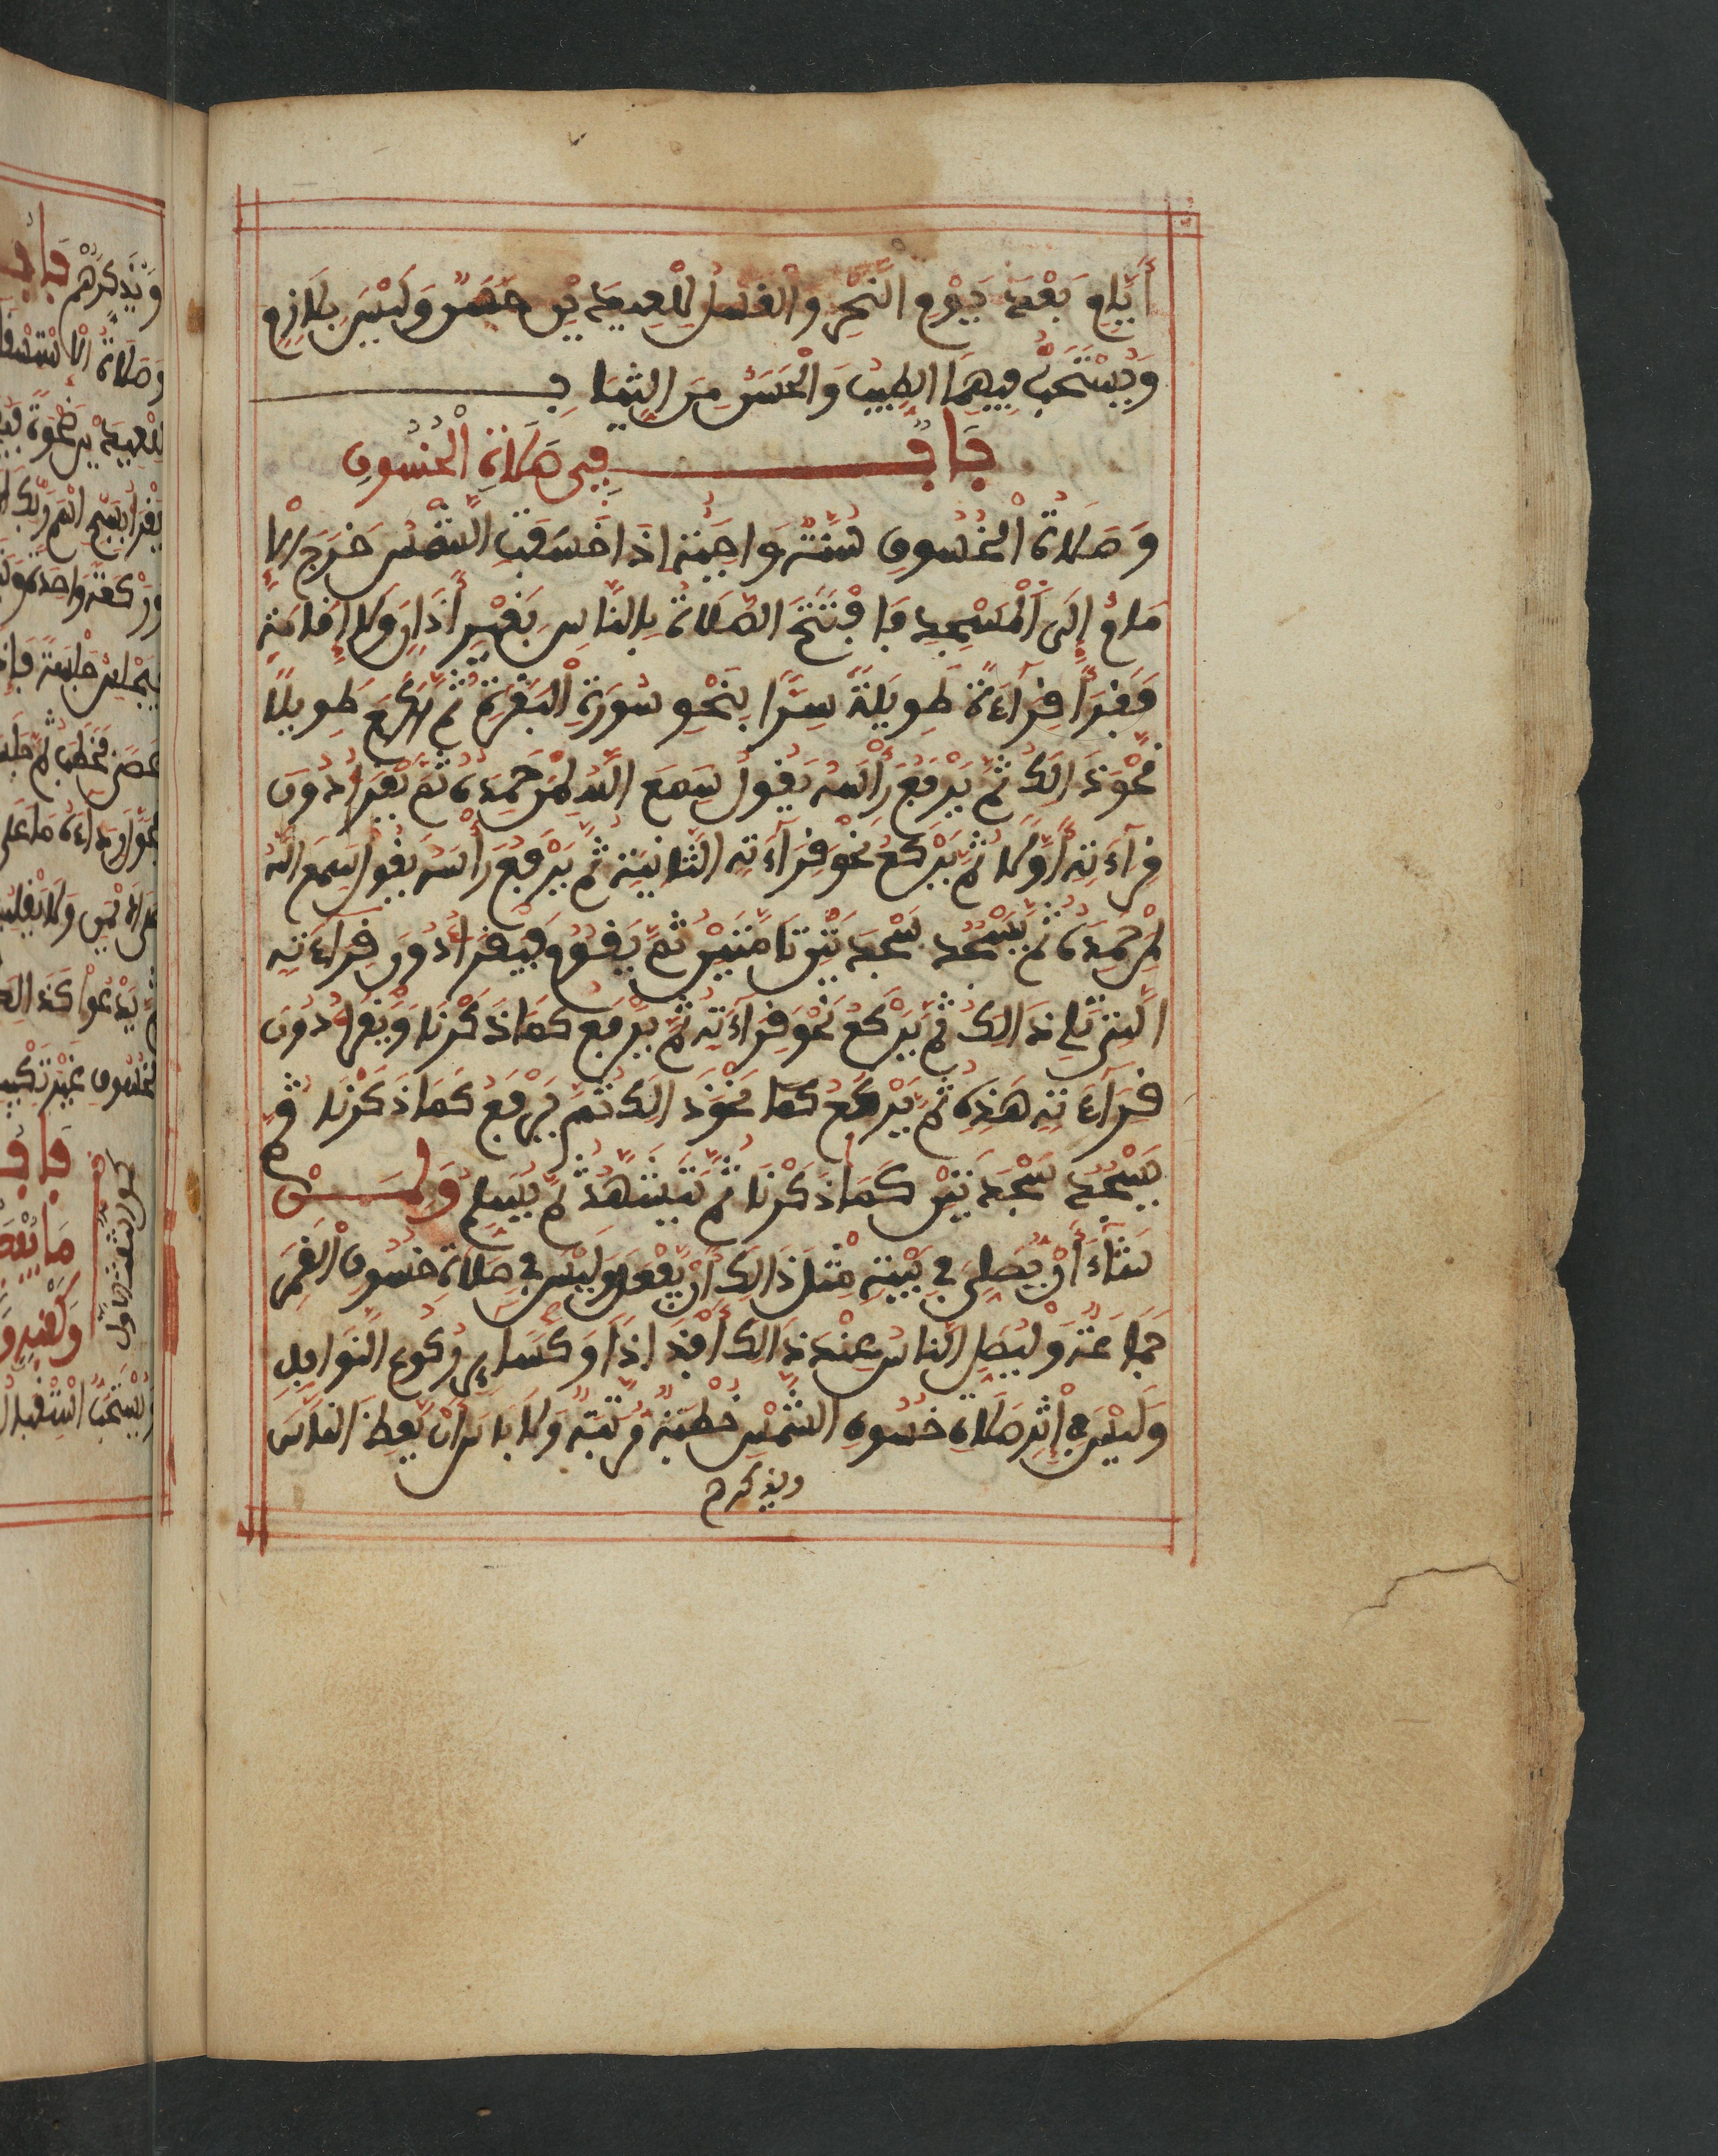 أَيَّامٍ بَعْدَ يَوْمِ النَّحْرِ وَالْغُسْلُ لِلْعِيدَيْنِ حَسَنٌ وَلَيْسَ بِلَازِمٍ
وَيُسْتَحَبُّ فِيهِمَا الطِّيبُ وَالْحَسَنُ مِنَ الثِّيَابِ
بَابٌ فِي صَلَاةِ الْخُسُوفِ
وَصَلَاةُ الْخُسُوفِ سُنَّةٌ وَاجِبَةٌ إِذَا خَسَفَتِ الشَّمْسُ خَرَجَ الْإِ
مَامُ إِلَى الْمَسْجِدِ فَافْتَتَحَ الصَّلَاةَ بِالنَّاسِ بِغَيْرِ أَذَانٍ وَلَا إِقَامَةٍ
فَقَرَأَ قِرَآءَةً طَوِيلَةً سِرًّا بِنَحْوِ سُورَةِ الْبَقَرَةِ ثُمَّ يَرْكَعُ طَوِيلًا
نَحْوَ ذَالِكَ ثُمَّ يَرْفَعُ رَأْسَهُ يَقُولُ سَمِعَ اللَّهُ لِمَنْ حَمِدَهُ ثُمَّ يَقْرَأُ دُونَ
قِرَآءَتِهِ أَوَّلًا ثُمَّ يَرْكَعُ نَحْوَ قِرَآءَتِهِ الثَّانِيَةِ ثُمَّ يَرْفَعُ رَأْسَهُ يَقُولُ سَمِعَ اللَّهُ
لِمَنْ حَمِدَهُ ثُمَّ يَسْجُدُ سَجْدَتَيْنِ تَامَّتَيْنِ ثُمَّ يَقُومُ فَيَقْرَأُ دُونَ قِرَآءَتِهِ
الَّتِي تَلِي ذَالِكَ ثُمَّ يَرْكَعُ نَحْوَ قِرَآءَتِهِ ثُمَّ يَرْفَعُ كَمَا ذَكَرْنَا وَيَقْرَأُ دُونَ
قِرَآءَتِهِ هَذِهِ ثُمَّ يَرْكَعُ كَمَا نَحْوَ ذَالِكَ ثُمَّ يَرْفَعُ كَمَا ذَكَرْنَا ثُمَّ
يَسْجُدُ سَجْدَتَيْنِ كَمَا ذَكَرْنَا ثُمَّ يَتَشَهَّدُ ثُمَّ يُسَلِّمُ وَلِمَنْ
شَآءَ أَنْ يُصَلِّيَ فِي بَيْتِهِ مِثْلَ ذَالِكَ أَنْ يَفْعَلَ وَلَيْسَ فِي صَلَاةِ خُسُوفِ الْقَمَرِ
جَمَاعَةٌ وَلْيُصَلِّ النَّاسُ عِنْدَ ذَالِكَ أَفْذَاذًا وَكَسَايِرِ رُكُوعِ النَّوَافِلِ
وَلَيْسَ فِي إِثْرِ صَلَاةِ خُسُوفِ الشَّمْسِ خُطْبَةٌ مُرَتَّبَةٌ وَلَا بَأْسَ أَنْ يَعِظَ النَّاسَ
ويذكرهم